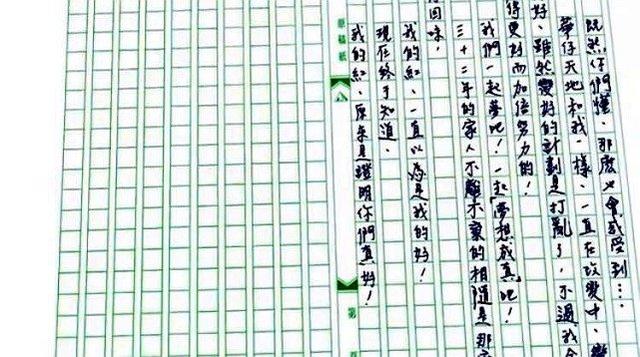 既然你們懂，那麼也會感受到…
華仔天地和我一樣、一直在改變中、變
好、雖然變好的計劃是打亂了，不過我
得更好而加倍努力的！
我們一起夢吧！一起「夢想成真」吧！
三十二年的家人不離不棄的相隨是那
回味，
我的紅、一直以為是我的好！
現在終于知道、
我的紅、原來是證明你們真好！
原稿紙
八
第